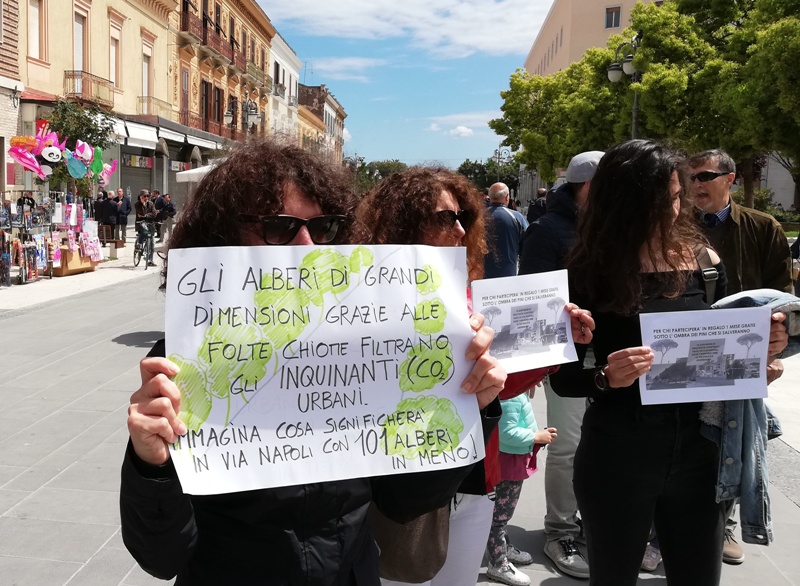 GLI ALBERI DI GRANDI
DIMENSIONI GRAZIE ALLE
FOLTE CHIOME FILTRANO
GLI INQUINANTI (CO2)
URBANI.
IMMAGINA COSA SIGNIFICHERA'
IN VIA NAPOLI CON 101 ALBERI
IN MENO!
PER CHI PARTECIPERA' IN REGALO 1 MESE GRATIS
SOTTO L'OMBRA DEI PINI CHE SI SALVERANNO.
PER CHI PARTECIPERA' IN REGALO 1 MESE GRATIS
SOTTO L'OMBRA DEI PINI CHE SI SALVERANNO.